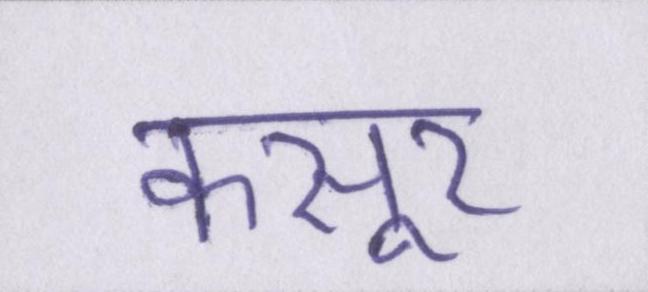 कसूर